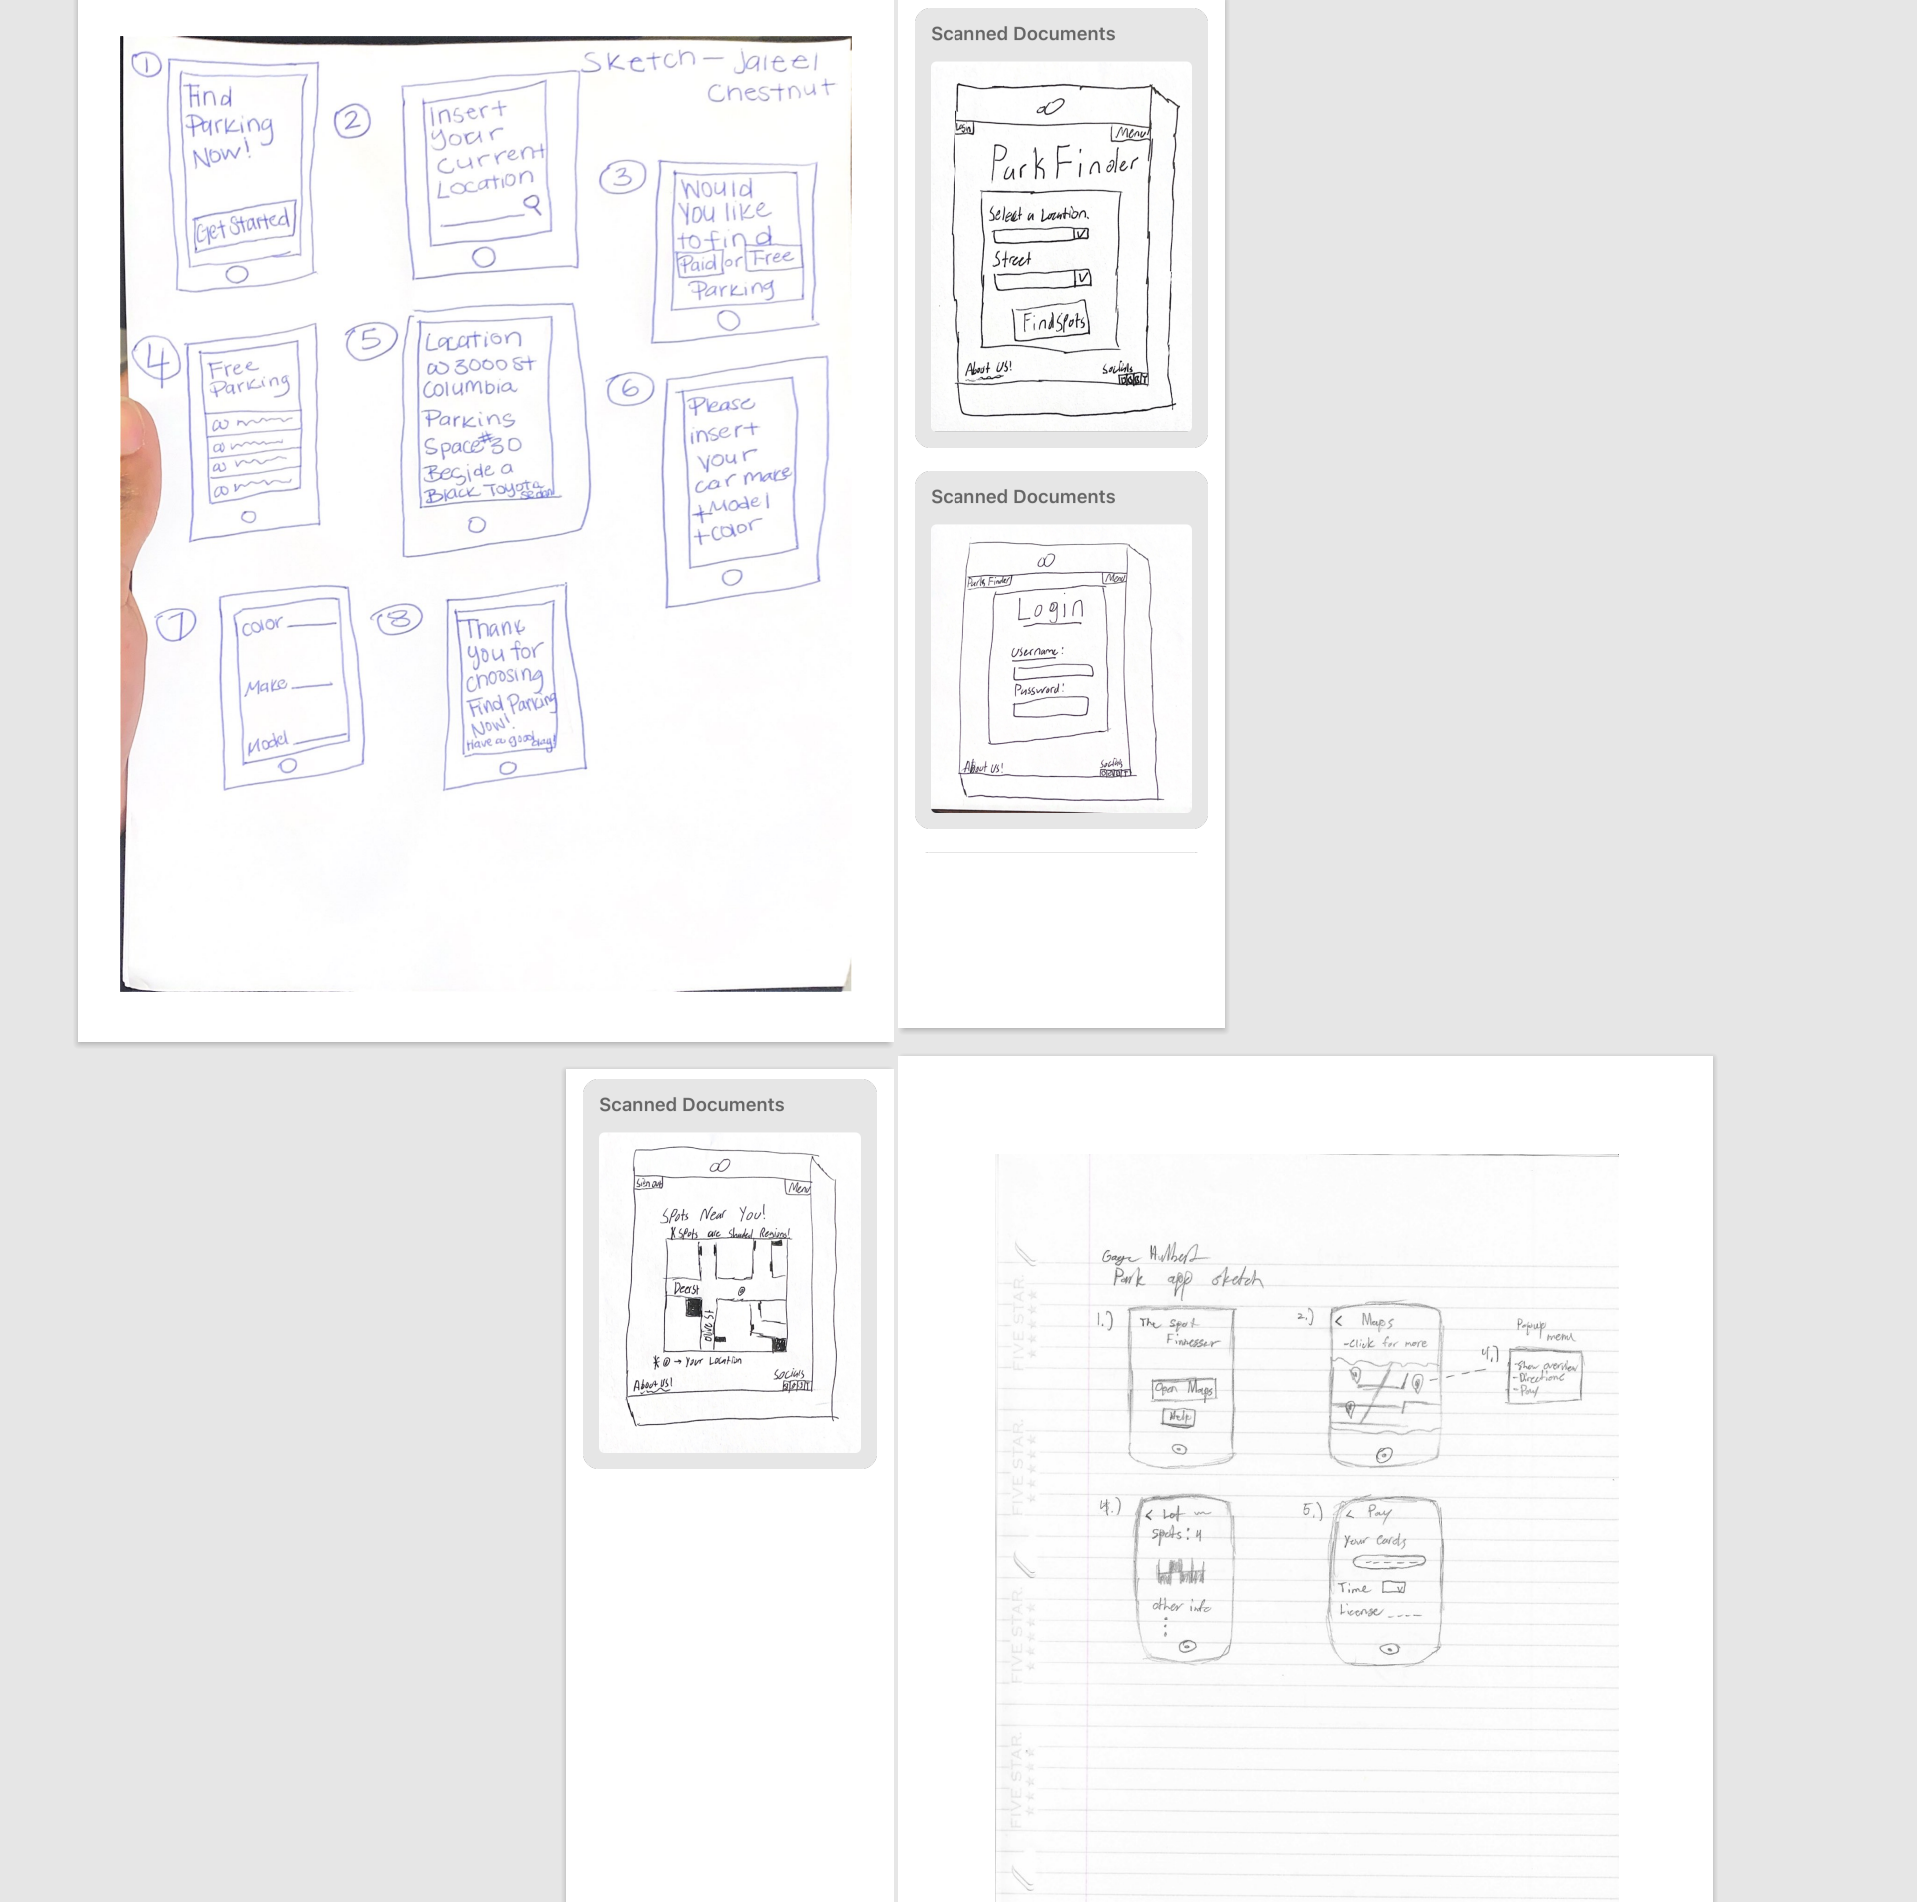 Sketch - Jaleel
Chestnut
1
Find
Parking
Now!
Get Started
2
Insert
your
current
Location
3
Would
You like
to find
Paid or Free
Parking
4
Free
Parking
@
@
@
@
5
Location
@ 3000 St
Columbia
Parking
Space #30
Beside a
Black Toyota
sedan
6
Please
insert
your
car make
+Model
+color
7
Color
Make
Model
8
Thank
you for
choosing
Find Parking
Now!
Have a good day!
Scanned Documents
Login
Menu
Park Finder
Select a Location.
Street
Find Spots
About Us!
Socials
Scanned Documents
Park Finder
Menu
Login
Username:
Password:
About Us!
Socials
Scanned Documents
Sign out
Menu
Spots Near You!
* Spots are Shaded Regions!
Deer st
@
Olive St
* @ → Your Location
About Us!
Socials
Gage Hulbert
Park app sketch
1.)
The Spot
Finnesser
Open Maps
Help
2.)
< Maps
-Click for more
Popup
menu
4.)
-Show overview
-Directions
-Pay
4.)
< Lot
spots: 4
other info
5.)
< Pay
Your Cards
Time
License
FIVE STAR.
FIVE STAR.
FIVE STAR.
FIVE STAR.